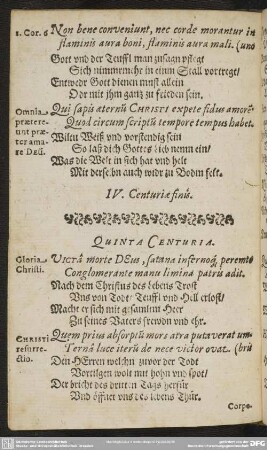 1. Cor. 6 Non bene conveniunt, nec corde morantur in
flaminis aura boni, flaminis aura mali. (uno
Gott vnd der Teuffl man zusagn pflegt
Sich nimmrmehr in einm Stall vortregt/
Entwedr Gott dienen must allein
Odr mit ihm gantz zu frieden sein.
Omnia prætereunt præter amare DEū. Qui sapis æternū CHRISTI expete fidus amorē
Quod circum scriptū tempore tempus habet.
Wiltu Weiß vnd vorstendig sein
So laß dich Gottes lieb nemn ein/
Was die Welt in sich hat vnd helt
Mit derselbn auch widr zu Bodm felt.
IV. Centuriæ finis.
QUINTA CENTURIA.
Gloria Christi. Victâ morte DEus, satana infernoq́; peremtô
Conglomerante manu limina patris adit.
Nach dem Christus des Lebens Trost
Vns von Todt/ Teuffl vnd Hell erlost/
Macht er sich mit gesamlem Heer
Zu seines Vaters frewden vnd ehr.
CHRISTI resurrectio. Quem prius absorptū mors atra putaverat um-
Ternâ luce iterū de nece victor ovat. (brū
Den HErren welchn zuvor der Todt
Vortilgen wolt mit hohn vnd spot/
Der bricht des dritten Tags herfür
Vnd öffnet vns des lebens Thür.
Corpo-